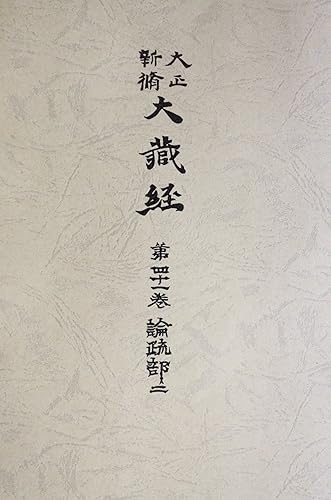 大正
新脩
大藏経
第四十一巻 論疏部二